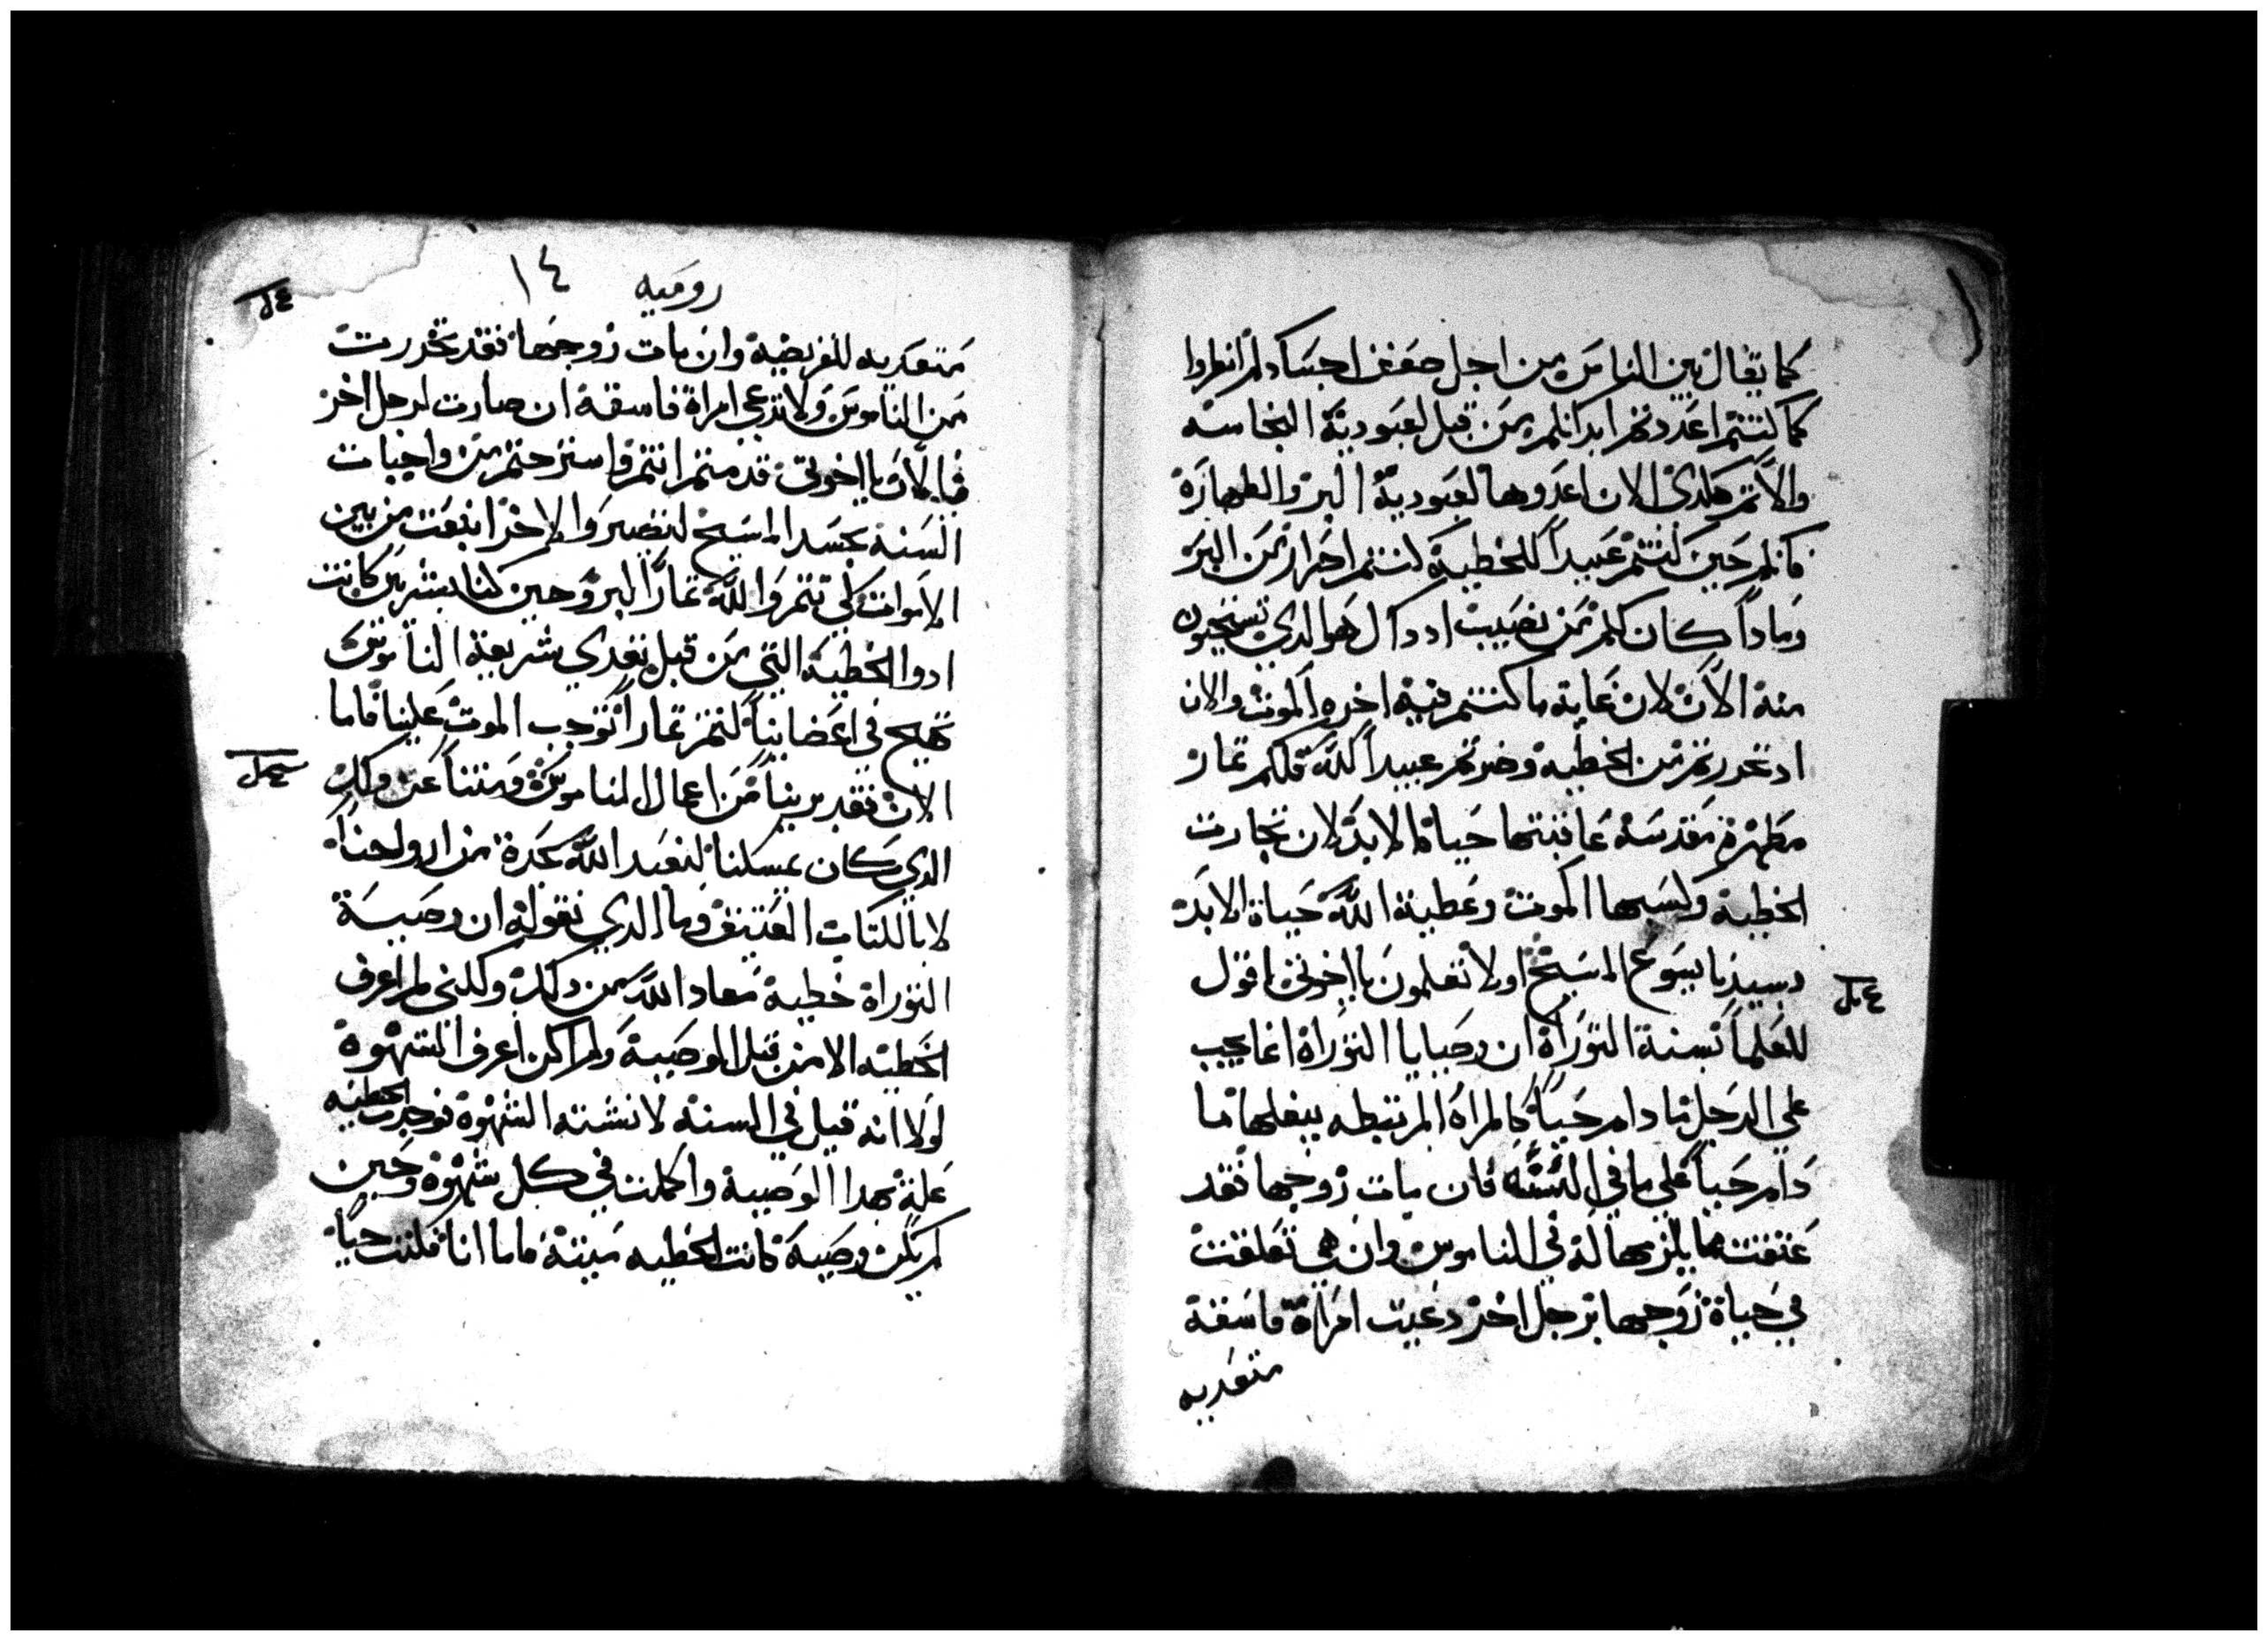 كما يقال بين الناس من اجل ضعف اجسادكم انظروا
كما كنتم اعددتم ابدانكم من قبل لعبودية النجاسه
والاثم هكدى الان اعدوها لعبودية البر والطهارة
فانكم حين كنتم عبيداً للخطية كنتم احرار من البر
وماداً كان لكم من نصيب اد داك هو الدي تستحيون
منه الآن لان غاية ما كنتم فيه اخره الموت والان
اد تحررتم من الخطيه وصرتم عبيداً لله فلكم ثمار
مطهرة مقدسة عاقبتها حياة الابد لان تجارت
الخطية وكسبها الموت وعطية الله حياة الابد
بسيدنا يسوع المسيح اولا تعلمون يا اخوتي اقول
للعلما بسنة التوراة ان وصايا التوراة انما يجب
علي الرجل ما دام حياً كالمراة المرتبطه ببعلها ما
دام حياً علي ما في السنه فان مات زوجها فقد
عتقت مما يلزمها له في الناموس وان هي تعلقت
في حياة زوجها برجل اخر دعيت امراة فاسقة
متعديه
رومية ١٤
متعديه للفريضة وان مات زوجها فقد تحررت
من الناموس ولا تدعي امراة فاسقة ان صارت لرجل اخر
فالآن يا اخوتي قد متم انتم واسترحتم من واجبات
السنة بجسد المسيح لتصيروا لاخر انبعث من بين
الاموات لكي تثمروا لله ثمار البر وحين كنا بشريين كانت
ادوا الخطية التي من قبل تعدي شريعة الناموس
تهيج في اعضايناً لنثمر ثماراً توجب الموت علينا فاما
الان فقد برينا من اعمال الناموس ومتنا عن دلك
الدي كان يمسكنا لنعبد الله بجدة من ارواحنا
لا بالكتاب العتيق وما الدي نقوله ان وصية
التوراة خطية معاد الله من دلك ولكني لم اعرف
الخطيه الا من قبل الوصية ولم اكن اعرف الشهوة
لولا انه قيل في السنة لا تشته الشهوة فوجدت الخطيه
علة بهدا الوصية واكملت في كل شهوة وحين
لم تكن وصية كانت الخطيه ميتة فاما انا فكنت حياً